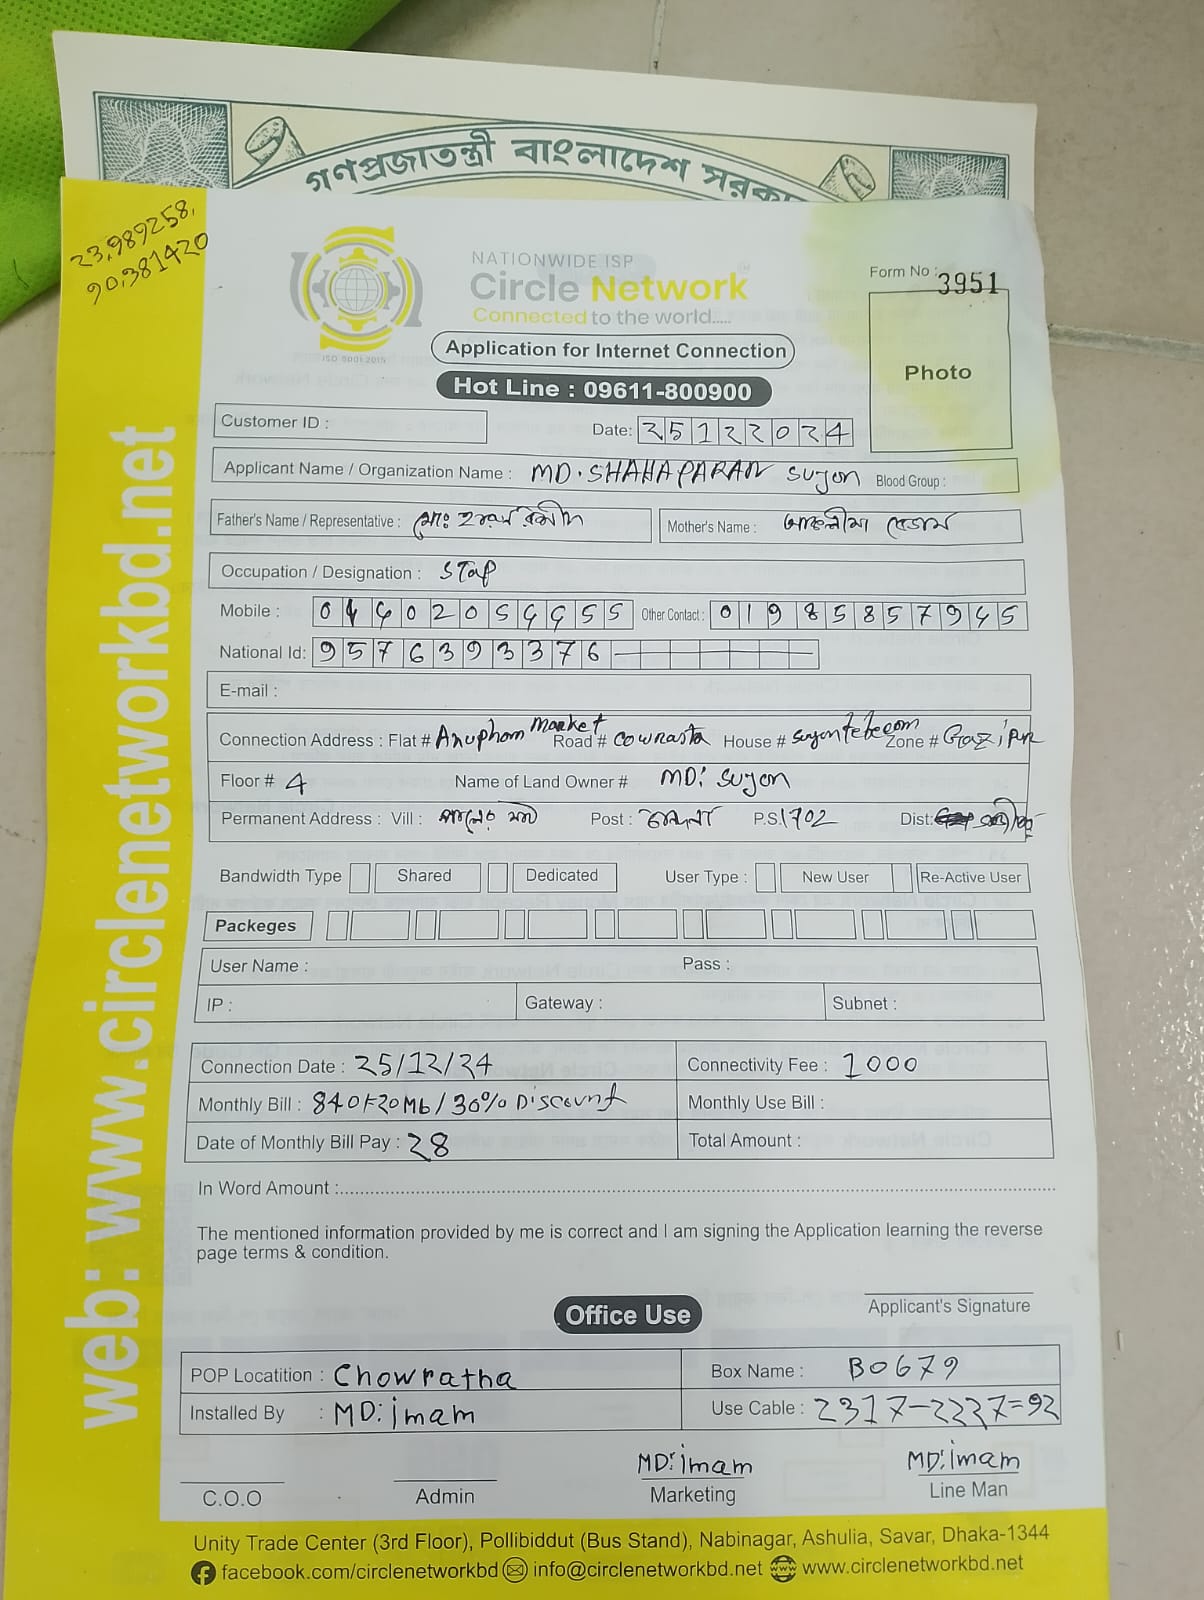 গণপ্রজাতন্ত্রী বাংলাদেশ সরকা
23.989258,
90.381420
NATIONWIDE ISP
Circle Network
Connected to the world.....
ISO 9001:2015
Form No : 3951
Application for Internet Connection
Photo
Hot Line : 09611-800900
Customer ID :
Date: 25122024
Applicant Name / Organization Name : MD. SHAHAPARAN Sujon Blood Group :
Father's Name / Representative : মোঃ
Mother's Name : বেগম
Occupation / Designation : STap
Mobile : Other Contact : 01985857945
National Id: 9576393376
E-mail :
Connection Address : Flat # Anupham Market Road # Cowrasta House # Sujon telecom Zone # Gazipur
Floor # 4 Name of Land Owner # MD: Sujon
Permanent Address : Vill : Post : P.S. 1702 Dist:
Bandwidth Type Shared Dedicated User Type : New User Re-Active User
Packeges
User Name : Pass :
IP : Gateway : Subnet :
Connection Date : 25/12/24 Connectivity Fee : 1000
Monthly Bill : 840 20Mb / 30% Discount Monthly Use Bill :
Date of Monthly Bill Pay : 28 Total Amount :
In Word Amount :
The mentioned information provided by me is correct and I am signing the Application learning the reverse
page terms & condition.
Applicant's Signature
Office Use
POP Locatition : Chowratha Box Name : B0679
Installed By : MD: imam Use Cable : 2317-2227=92
MD: imam MD: imam
C.O.O Admin Marketing Line Man
Unity Trade Center (3rd Floor), Pollibiddut (Bus Stand), Nabinagar, Ashulia, Savar, Dhaka-1344
facebook.com/circlenetworkbd info@circlenetworkbd.net www.circlenetworkbd.net
web: www.circlenetworkbd.net